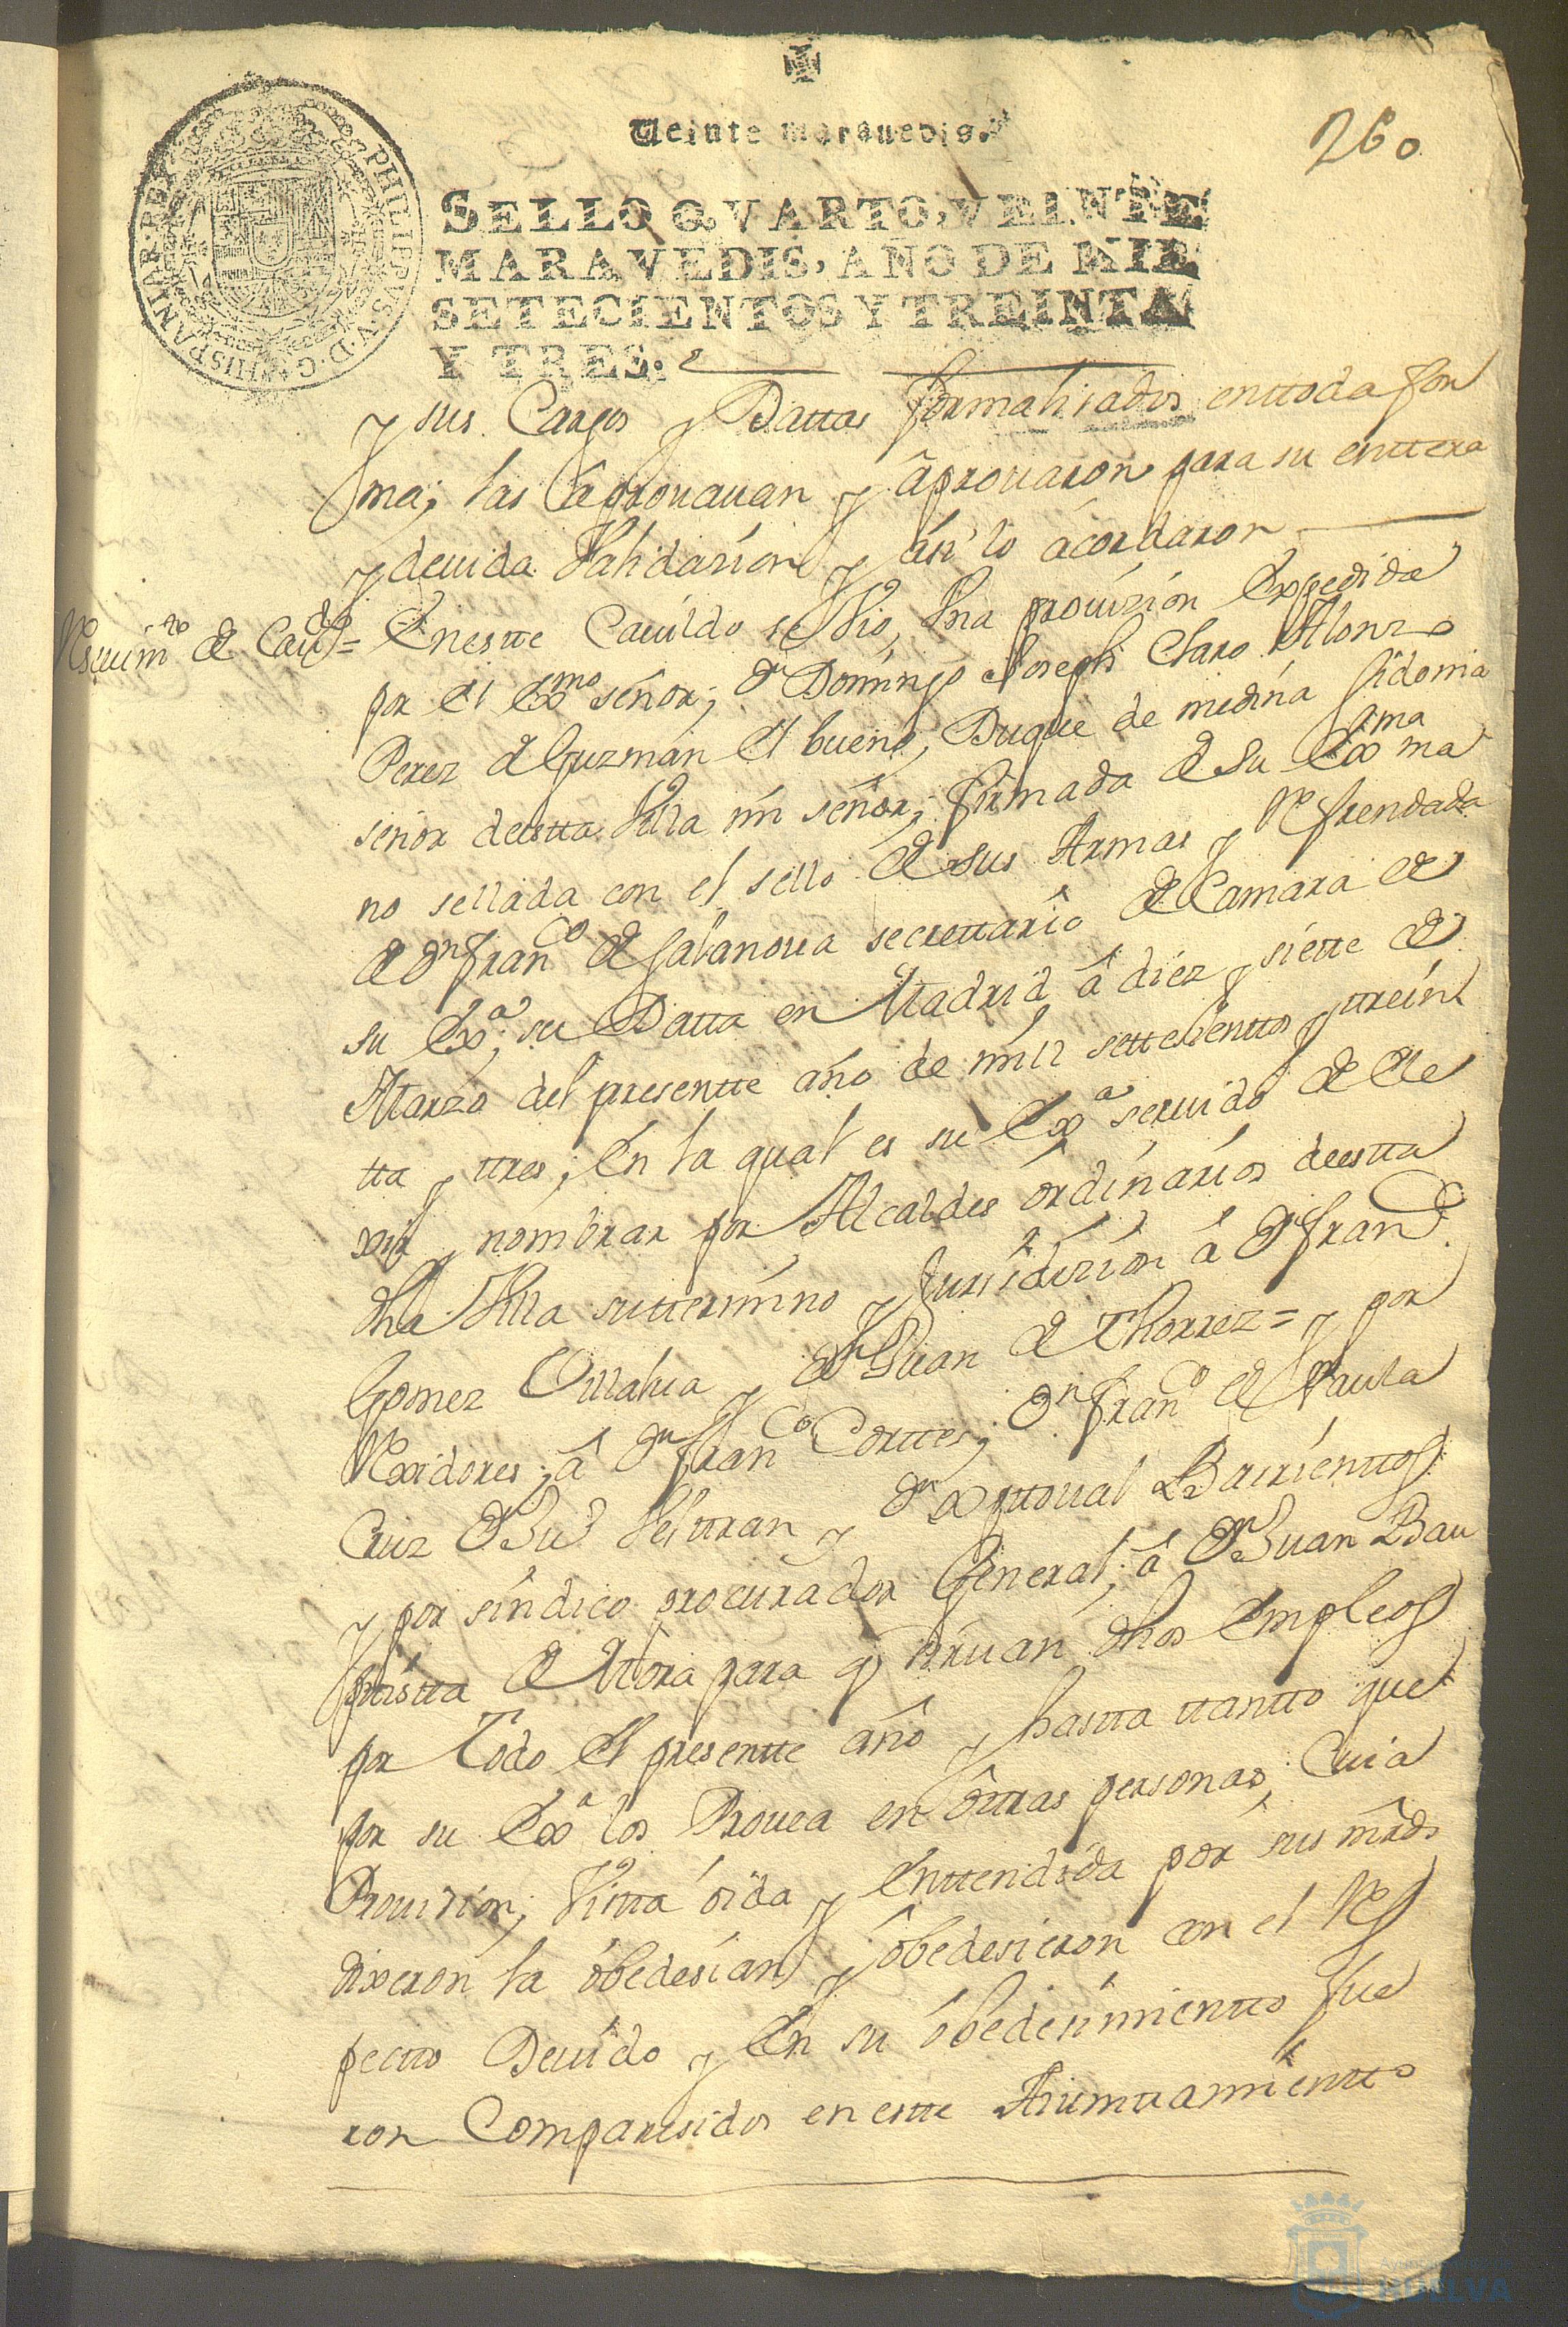 Veinte maravedis.
260
SELLO QVARTO, VEINTE
MARAVEDIS, AÑO DE MIL
SETECIENTOS Y TREINTA
Y TRES.
PHILIPPUS V D G HISPANIAR REX
y sus Cargos y Dattas formalisados enttoda for
ma; las aprouauan y aprouaron para su enttera
y deuida Validasion y asi lo acordaron
Resuim.to de Cau.do = Enestte Cauildo se Vio Vna prouizion Expedida
por el Ex.mo señor; Dn Domingo Joseph Claro Alonzo
Perez de Guzman el bueno, Duque de medina sidonia
señor deestta Villa mi señor; firmada de su Exma ma
no sellada con el sello de sus Armas y Refrendada
de Dn Fran.co de Casanoua secrettario de Camara de
su Ex.a; su Datta en Madrid â diez y siette de
Marzo del presentte año de mill settesienttos y ttrein
tta y ttres; En la qual es su Ex.a seruido de Ele
xir y nombrar por Alcaldes ôrdinarios deestta
dha Villa suttermino y Jurisdizion â Dn Fran.co
Gomez Villalua y Dn Juan de Thorrez = y por
Rexidores; â Dn Fran.co Corttes; Dn Fran.co de Paula
Cruz Dn Bu.e Belttran y Dn Xpttoual Barrienttos
y por sindico procurador General; â Dn Juan Bau
ptistta de Mora para q siruan dhos Empleos
por Todo el presentte año y hastta ttantto que
por su Ex.a los Prouea en ôttras personas; Cuia
Prouision; Vistta oida y Enttendida por sus mrds
dixeron la ôbedesian y ôbedesieron con el Res
pectto Deuido y En su ôbedesimientto fue
ron Comparesidos en estte Aiunttamientto
HUELVA